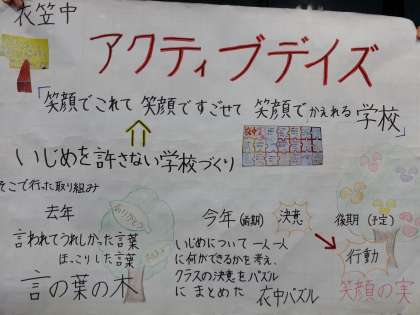 衣笠中
アクティブデイズ
「笑顔でこれて 笑顔ですごせて 笑顔でかえれる 学校」
いじめを許さない学校づくり
そこで行った取り組み
去年
言われてうれしかった言葉
ほっこりした言葉
言の葉の木
ありがとう
今年(前期)
決意
いじめについて一人一人
に何ができるかを考え、
クラスの決意をパズル
にまとめた
衣中パズル
後期(予定)
行動
笑顔の実